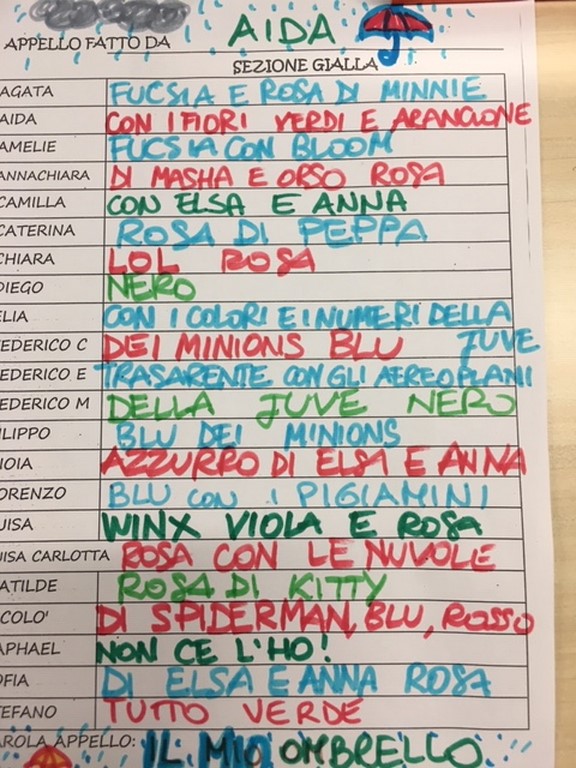 APPELLO FATTO DA AIDA
SEZIONE GIALLA
AGATA FUCSIA E ROSA DI MINNIE
AIDA CON I FIORI VERDI E ARANCIONE
AMELIE FUCSIA CON BLOOM
ANNACHIARA DI MASHA E ORSO ROSA
CAMILLA CON ELSA E ANNA
CATERINA ROSA DI PEPPA
CHIARA LOL ROSA
DIEGO NERO
ELIA CON I COLORI E I NUMERI DELLA JUVE
EDERICO C DEI MINIONS BLU
EDERICO E TRASARENTE CON GLI AEREOPLANI
EDERICO M DELLA JUVE NERO
ILIPPO BLU DEI MINIONS
IOIA AZZURRO DI ELSA E ANNA
ORENZO BLU CON I PIGIAMINI
UISA WINX VIOLA E ROSA
UISA CARLOTTA ROSA CON LE NUVOLE
ATILDE ROSA DI KITTY
COLO' DI SPIDERMAN, BLU, ROSSO
APHAEL NON CE L'HO!
OFIA DI ELSA E ANNA ROSA
TEFANO TUTTO VERDE
AROLA APPELLO: IL MIO OMBRELLO